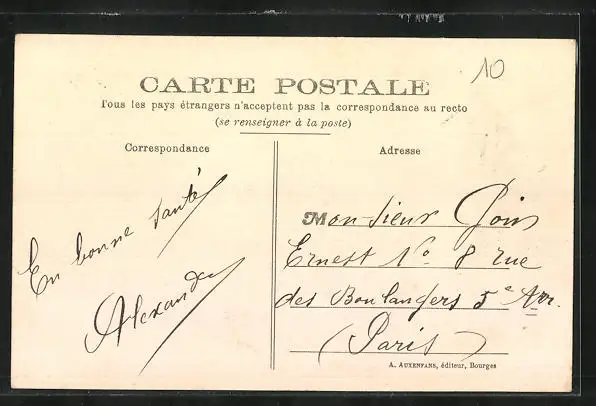 10
CARTE POSTALE
Tous les pays étrangers n'acceptent pas la correspondance au recto
(se renseigner à la poste)
Correspondance
Adresse
En bonne santé
Alexandre
Monsieur Goin
Ernest No 8 rue
des Boulangers 5e Arr.
(Paris)
A. AUXENFANS, éditeur, Bourges